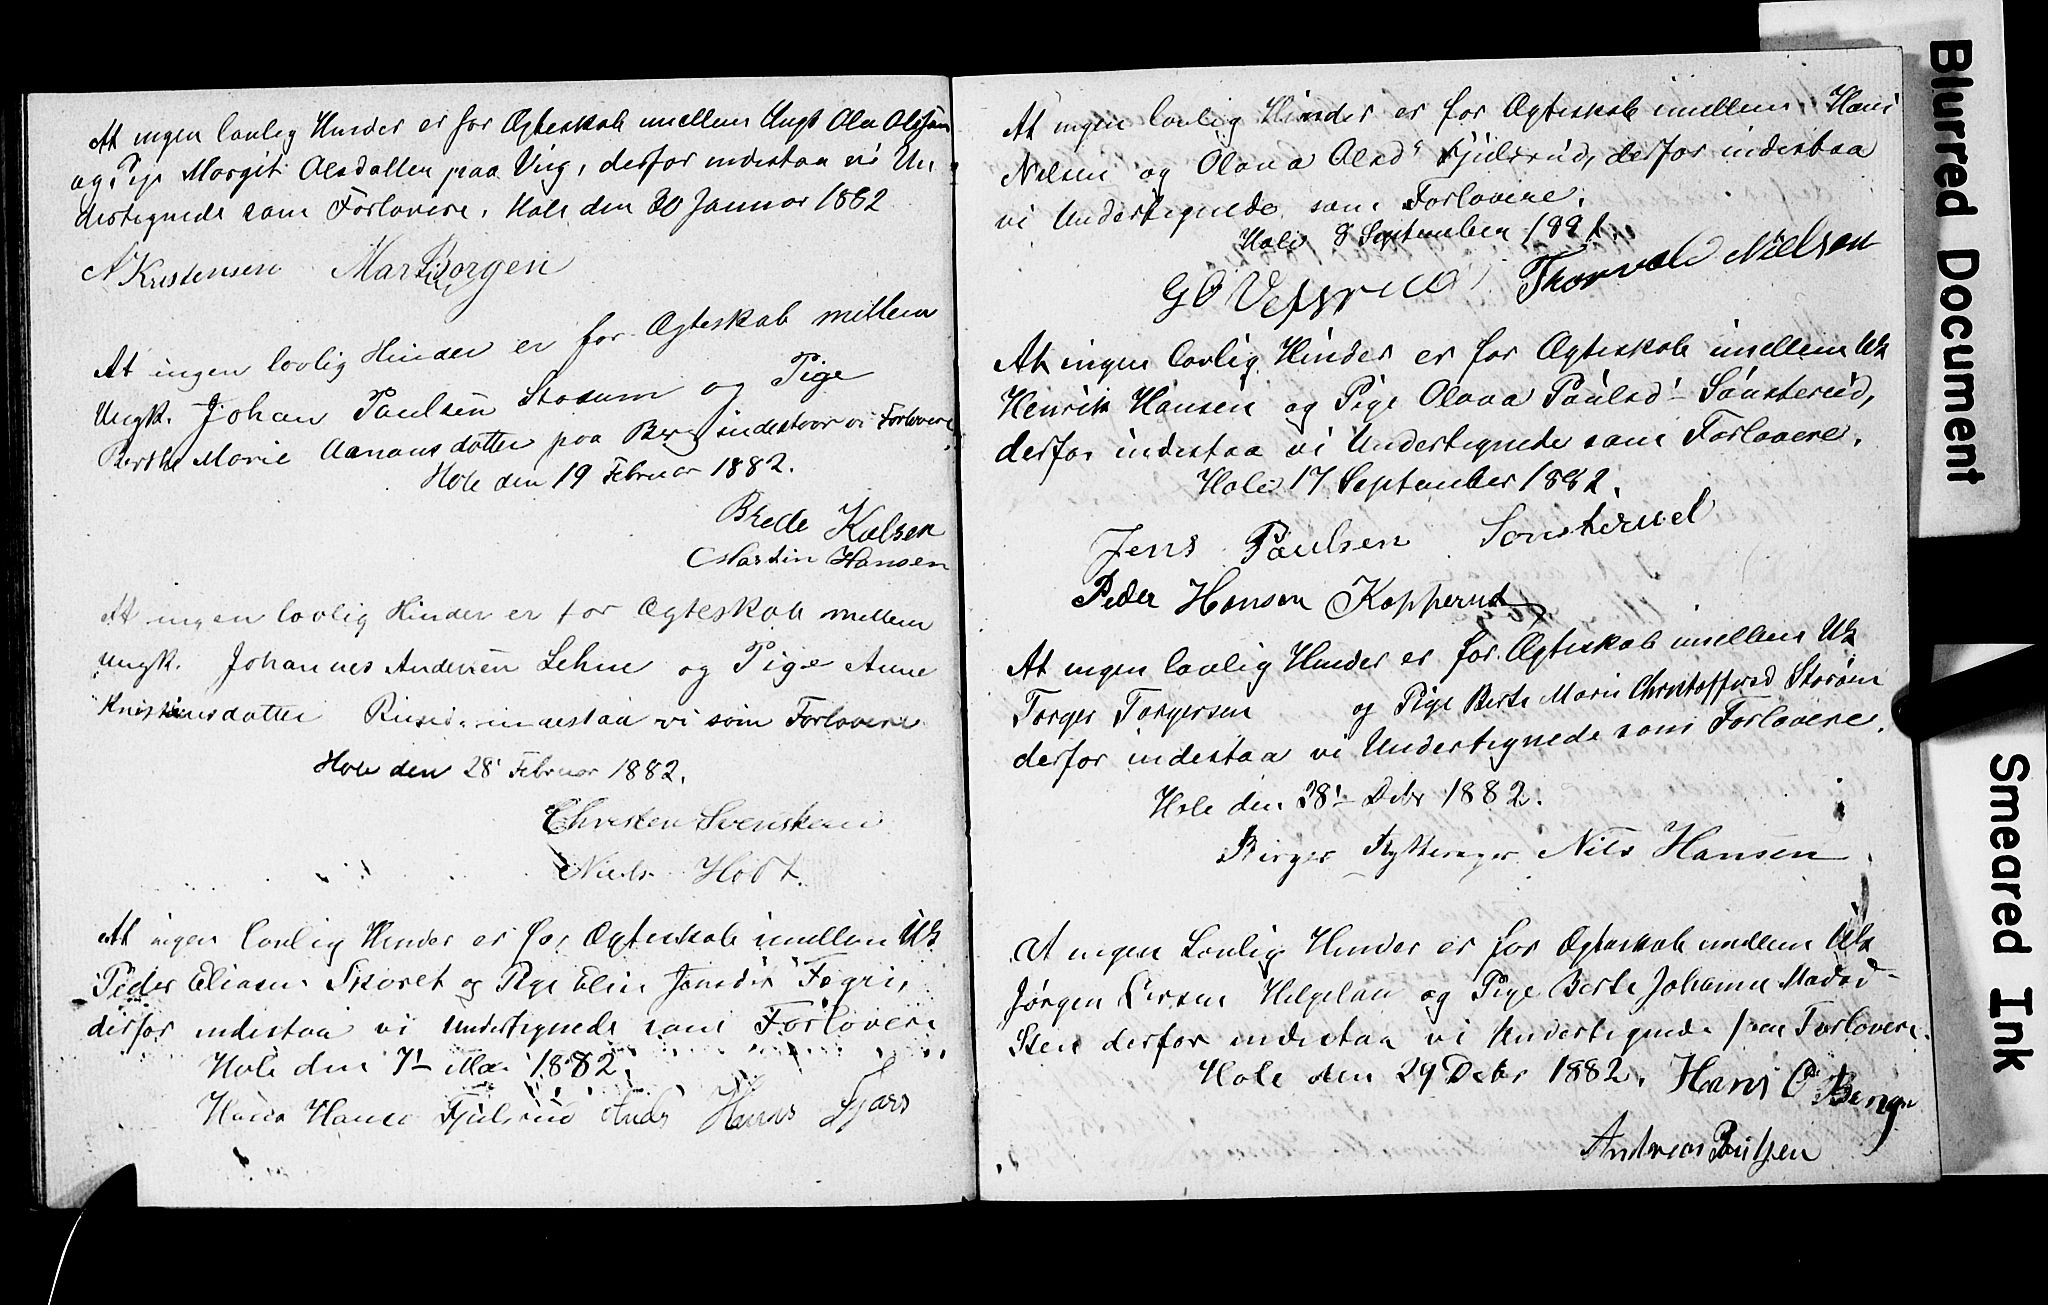 At ingen lovlig Hinder er for Ægteskab imellem Ungk Ole Olssen
og Pige Margit Olsdatter paa Viig, derfor indestaa vi Un-
dertegnede som Forlovere. Hole den 30 Januar 1882
N Kristensen Martin Borgen
At ingen lovlig Hinder er for Ægteskab mellem
Ungk. Johan Paulsen Stosum og Pige
Berthe Marie Aanonsdatter paa Berg indestaar vi Forlovere
Hole den 19 Februar 1882.
Brede Kolsen
Martin Hansen
At ingen lovlig Hinder er for Ægteskab mellem
Ungk. Johannes Andersen Lehne og Pige Anne
Kristiansdatter indestaa vi som Forlovere
Hole den 28' Februar 1882.
Christen Svensken
Niels Hodt.
At ingen lovlig Hinder er for Ægteskab imellem Uk
Peder Eliasen Skoret og Pige Elin Jonsdr Fegri,
derfor indestaa vi Undertegnede som Forlovere
Hole den 7'- Mai 1882.
Hans Hanse Fjulsrud Hans
At ingen lovlig Hinder er for Ægteskab imellem Hans
Nelsen og Olava Olsd' Fjulsrud, derfor indestaa
vi Undertegnede som Forlovere.
Hole 8 September 1882.
G O Thorvald Nielsen
At ingen lovlig Hinder er for Ægteskab imellem Uk
Henrik Hansen og Pige Olava Paulsd'- Sønsterud,
derfor indestaa vi Undertegnede som Forlovere.
Hole 17 September 1882.
Jens Paulsen Sonsterud
Peder Hansen Kopperud
At ingen lovlig Hinder er for Ægteskab imellem Uk
Torger Torgersen og Pige Berte Marie Christoffersd Storøen
derfor indestaa vi Undertegnede som Forlovere.
Hole den 28'- Debr 1882.
Birger Rytterager Nils Hansen
At ingen Lovlig Hinder er for Ægteskab imellem Uk
Jørgen Larsen Helgeland og Pige Berte Johanne Madsd-
Steen derfor indestaa vi Undertegnede som Forlovere.
Hole den 29 Debr 1882. Hans O Berg
Andreas Paulsen
Blurred Document
Smeared Ink